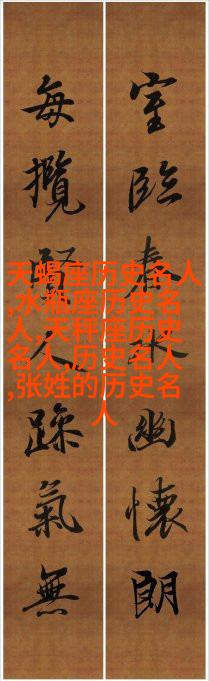 室臨春水幽懷朗
每攬賢人躁氣無
天蝎座历史名人
,水瓶座历史名
人,天秤座历史
名人,历史名人
,张姓的历史名
人